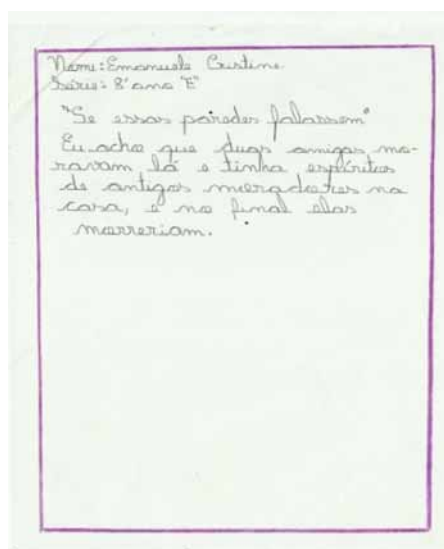 Nome: Emanuele Cristine
Série: 8º ano "E"
"Se essas paredes falassem"
Eu acho que duas amigas mo-
ravam lá e tinha espíritos
de antigos moradores na
casa, e no final elas
morreriam.